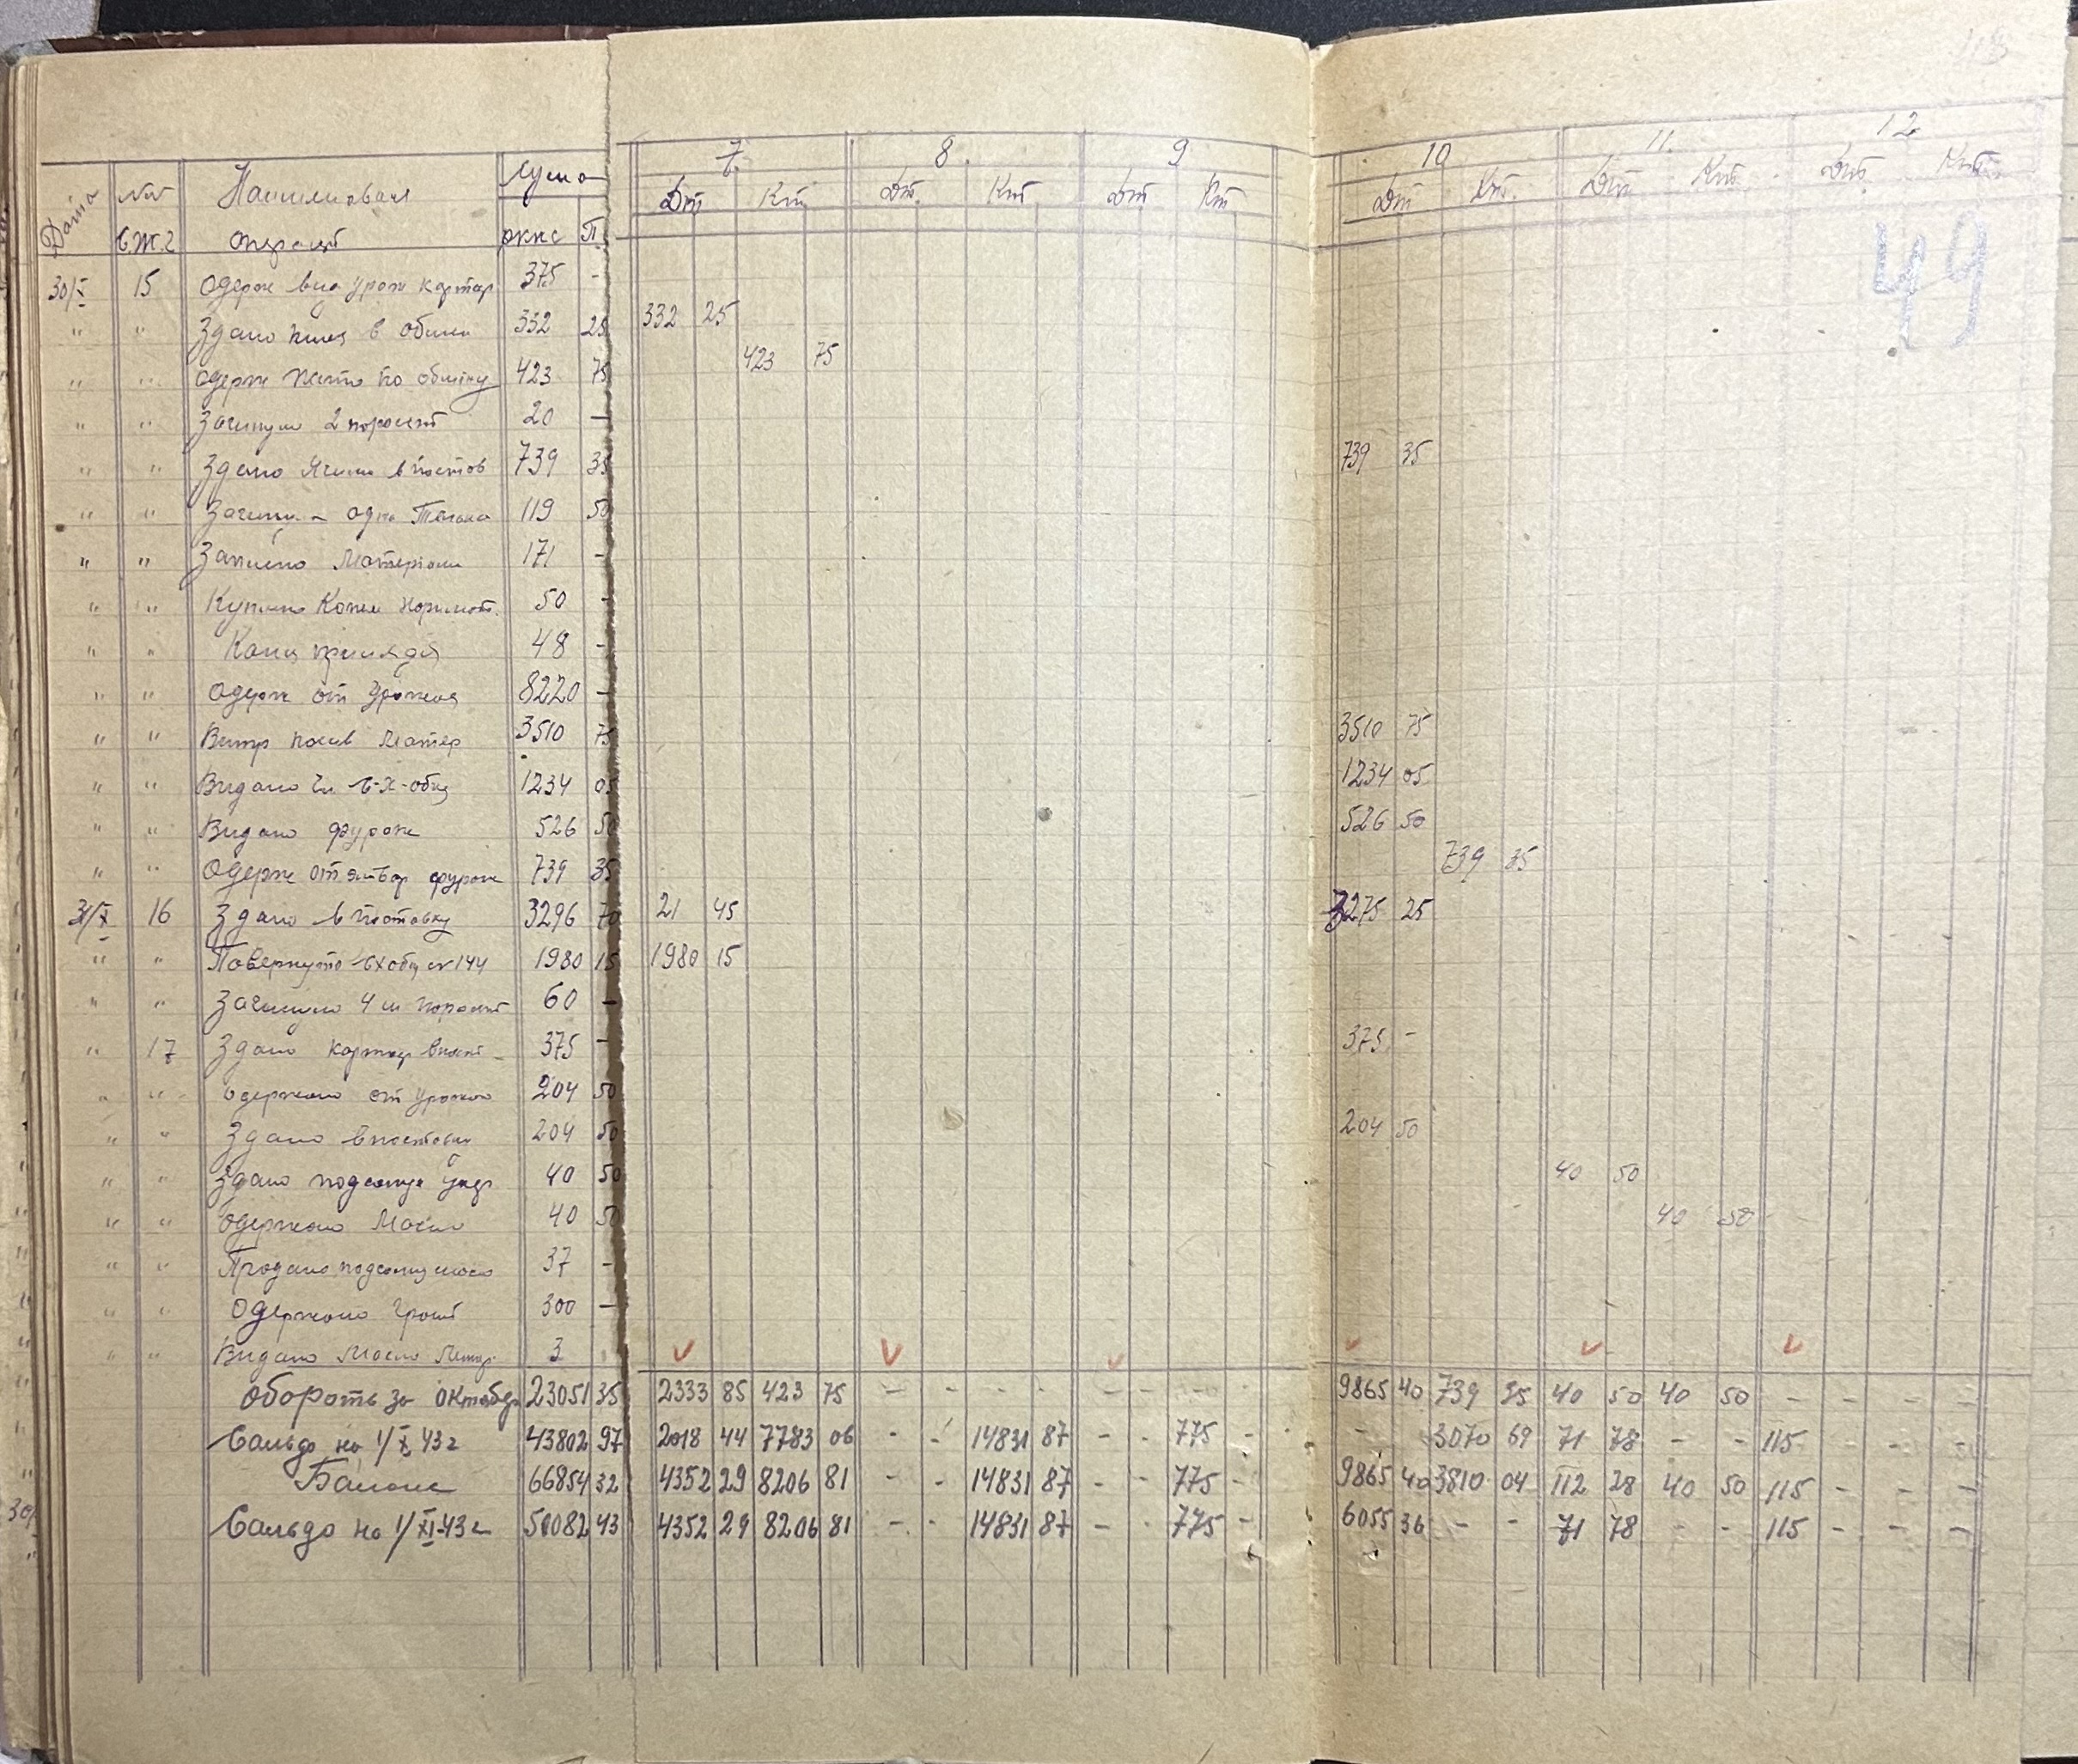 7 8. 9 10 11. 12
Дата №№ Наименованя Сума Дт Кт Дт. Кт Дт Кт Дт Кт. Дт Кт. Дт. Кт
операций ркпс П.
49
30/X 15 Одерж від урож картоп 375 -
" " Здано пшен в обмен 332 25 332 25
" " Одерж жито по обміну 423 75 423 75
" " Загинуло 2 поросят 20 —
" " Здано Ячмен в постав 739 35 739 35
" " Загинул одно Теля 119 50
" " Записано Матеріали 171 -
" " Куплено 50 -
" " 48 -
" " Одерж от Урожая 8220 -
" " Витр посів Матер 3510 75 3510 75
" " Видано 1234 05 1234 05
" " Видано фураж 526 50 526 50
" " Одерж от фураж 739 35 739 35
31/X 16 Здано в поставку 3296 70 21 45 3275 25
" " Повернуто 144 1980 15 1980 15
" " Загинуло 4 ш поросят 60 -
" 17 Здано картоф 375 - 375 -
" " Одержано от Урожая 204 50
" " Здано в поставки 204 50 204 50
" " Здано подсолнух 40 50 40 50
" " Одержано Масло 40 50 40 50
" " Продано подсолнух масло 37 -
" " Одержано грош 300 —
" " Видано Масло 3
Обороть за октябр 23051 35 2333 85 423 75 - - - - - - - - 9865 40 739 35 40 50 40 50 - - - -
Сальдо на 1/X 43 г 43802 97 2018 44 7783 06 - - 14831 87 - - 775 - - 3070 69 71 78 - - 115 - - -
Баланс 66854 32 4352 29 8206 81 - - 14831 87 - - 775 - 9865 40 3810 04 112 28 40 50 115 - - -
Сальдо на 1/XI-43 г 50082 43 4352 29 8206 81 - - 14831 87 - - 775 - 6055 36 - - 71 78 - - 115 - - -